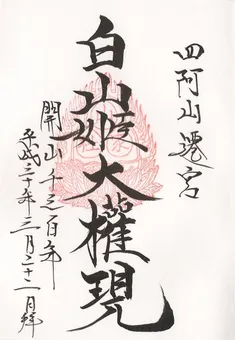 四阿山遷宮
白山大權現
開山千三百年
平成三十年三月二十一日拝